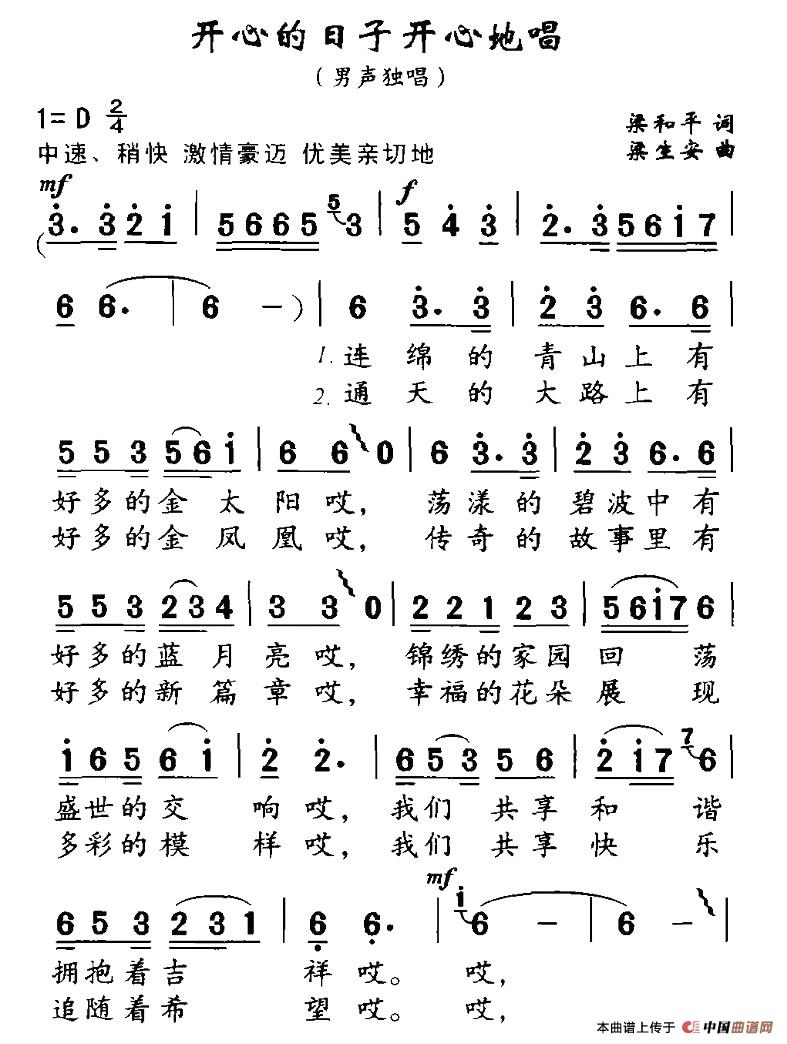 开心的日子开心地唱
（男声独唱）
1=D 2/4
梁和平 词
中速、稍快 激情豪迈 优美亲切地
梁生安 曲
mf f
(3̇. 3̇ 2̇ 1̇ | 5 6 6 5 5 3 | 5 4̇ 3̇ | 2̇. 3̇ 5 6 1̇ 7 |
6 6. | 6 －) | 6 3̇. 3̇ | 2̇ 3̇ 6. 6 |
1. 连 绵 的 青 山 上 有
2. 通 天 的 大 路 上 有
5 5 3 5 6 1̇ | 6 6 0 | 6 3̇. 3̇ | 2̇ 3̇ 6. 6 |
好多的金 太 阳哎， 荡漾的碧波中有
好多的金 凤 凰哎， 传奇的故事里有
5 5 3 2 3 4 | 3 3 0 | 2 2 1 2 3 | 5 6 1̇ 7 6 |
好多的蓝 月 亮哎， 锦绣的家园回 荡
好多的新 篇 章哎， 幸福的花朵展 现
1̇ 6 5 6 1̇ | 2̇ 2̇. | 6 5 3 5 6 | 2̇ 1̇ 7 7 6 |
盛世的交 响哎，我们 共享和 谐
多彩的模 样哎，我们 共享快 乐
mf
6 5 3 2 3 1 | 6̣ 6̣. | 1̇ 6 － | 6 － |
拥抱着吉 祥哎。 哎，
追随着希 望哎。 哎，
本曲谱上传于 中国曲谱网